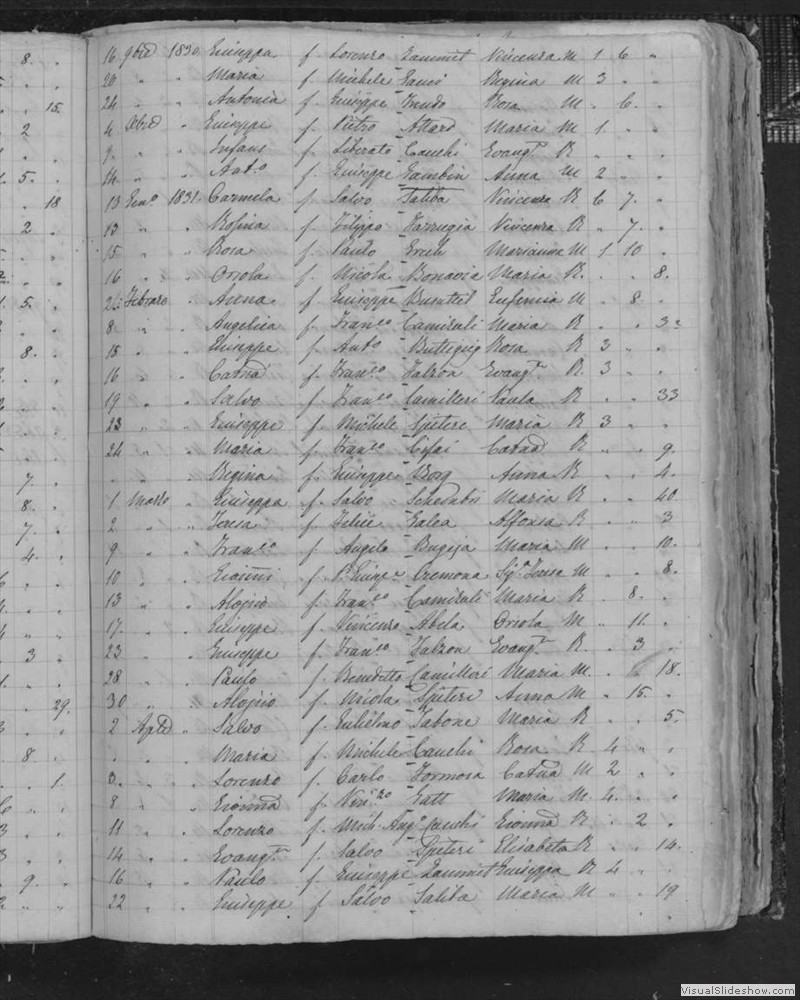 16 9bre 1830 Giuseppa f. Lorenzo Zammit Vincenza M 1 6 "
20 " " Maria f. Michele Gauci Regina M 3 . .
24 " " Antonia f. Giuseppe Rosa M . 6 .
4 Xbre " Giuseppe f. Pietro Attard Maria M 1 . .
9 " " Infans f. Liberato Cauchi Evang.a R . . .
14 " " Ant.o f. Giuseppe Gambin Anna M 2 . .
13 Gen.o 1831 Carmela f. Salvo Saliba Vincenza R 6 7 .
13 " " Rosina f. Filippo Farrugia Vincenza R . 7 .
15 " " Rosa f. Paulo Grech Marianna M 1 10 .
16 " " Oriola f. Nicola Bonavia Maria R . . 8.
2 Febraro " Anna f. Giuseppe Busuttil Eufemia M . 8 .
8 " " Angelica f. Fran.co Camisuli Maria R . .
15 " " Giuseppe f. Ant.o Buttigieg Rosa R 3 . .
16 " " Catna f. Fran.co Falzon Evang.a R 3 . .
19 " " Salvo f. Fran.co Camilleri Paula R . . 33
23 " " Giuseppe f. Michele Spiteri Maria R 3 . .
24 " " Maria f. Fran.co Cifai Catna R . . 9.
. " " Regina f. Giuseppe Borg Anna R . . 4.
1 Marzo " Giuseppa f. Salvo Schembri Maria R . . 40
2 " " Teresa f. Felice Galea Alfonsa R . . 3
9 " " Fran.co f. Angelo Bugeja Maria M . . 10.
10 " " Gioanni f. Giuseppe Cremona Sig.a Teresa M . . 8.
13 " " Aloisio f. Fran.co Camisuli Maria R . 8 .
17 " " Giuseppe f. Vincenzo Abela Oriola M " 11 .
23 " " Giuseppe f. Fran.co Falzon Evang.a R . 3 .
28 " " Paulo f. Benedetto Camilleri Maria M . . 18.
30 " " Aloisio f. Nicola Spiteri Anna M . 15 .
2 Aple " Salvo f. Gulielmo Tabone Maria R . . 5.
. " " Maria f. Michele Cauchi Rosa R 4 " .
3 " " Lorenzo f. Carlo Formosa Catna M 2 . .
8 " " Gionna f. Vin.zo Gatt Maria M 4 . .
11 " " Lorenzo f. Mich. Ang.o Cauchi Gionna R . 2 .
14 " " Evang.a f. Salvo Spiteri Elisabetta R . . 14.
16 " " Paulo f. Giuseppe Zammit Giuseppa R 4 . .
22 " " Giuseppe f. Salvo Saliba Maria M . . 19
VisualSlideshow.com